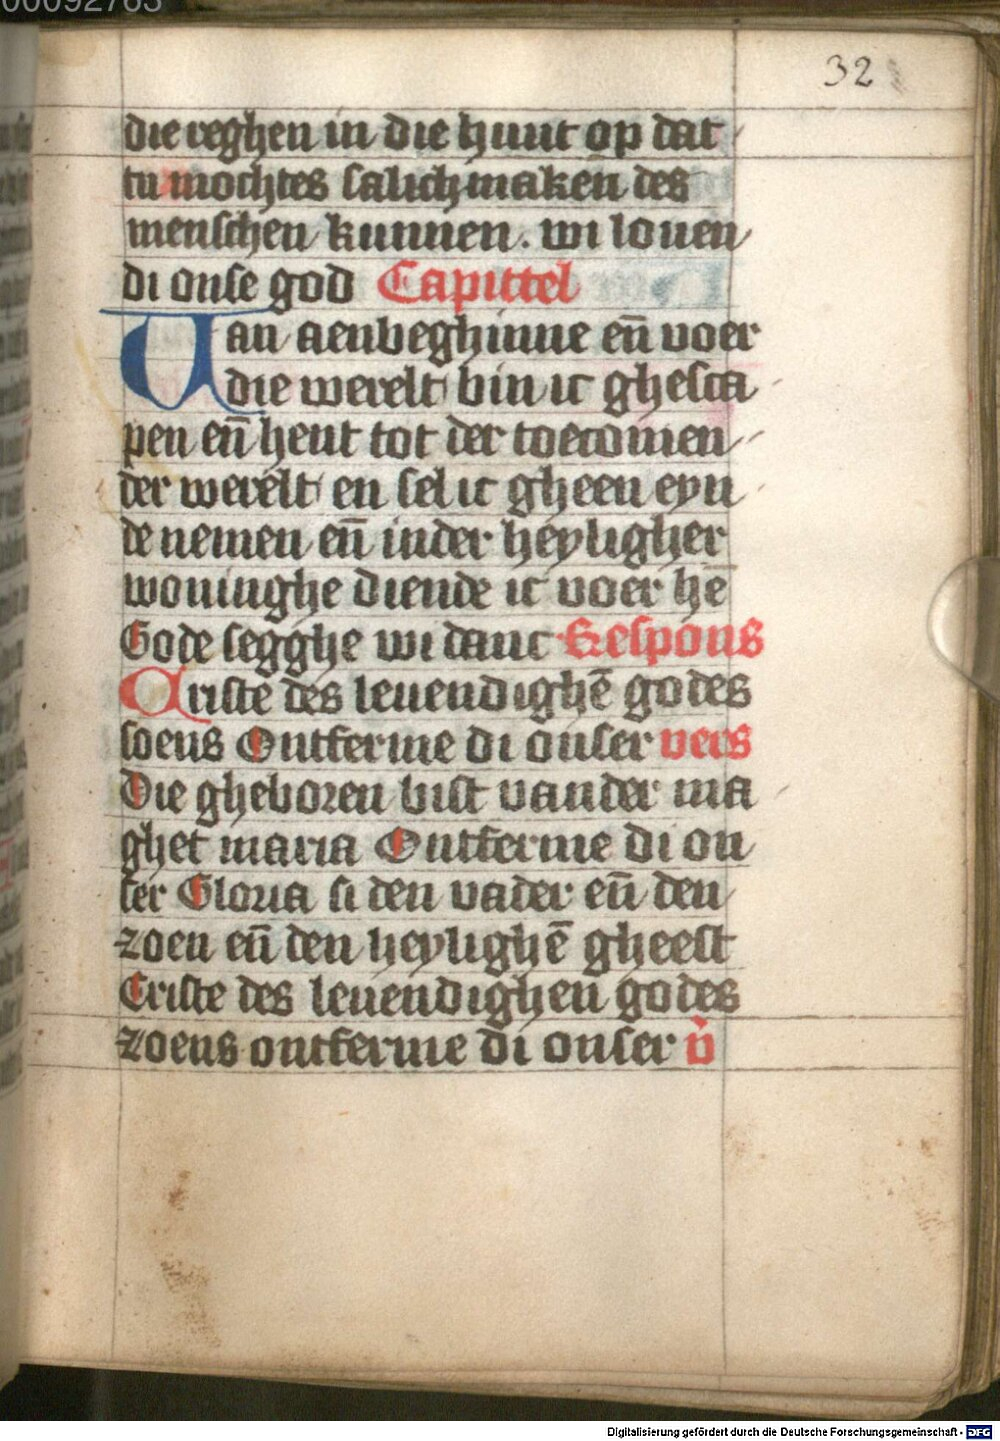 00092763
32
die reghen in die huut op dat
tu mochtes salich maken des
menschen kunnen. wi louen
di onse god Capittel
Uan aenbeghinne en̄ voer
die werelt bin ic ghesca
pen en̄ hent tot der toecomen
der werelt en sel ic gheen eyn
de nemen en̄ inder heyligher
woninghe diende ic voer hē
Gode segghe wi danc Respons
Criste des leuendighē godes
soens Ontferme di onser vers
Die gheboren bist vander ma
ghet maria Ontferme di on
ser Gloria si den vader en̄ den
zoen en̄ den heylighē gheest
Criste des leuendighen godes
zoens ontferme di onser v̄
Digitalisierung gefördert durch die Deutsche Forschungsgemeinschaft - DFG